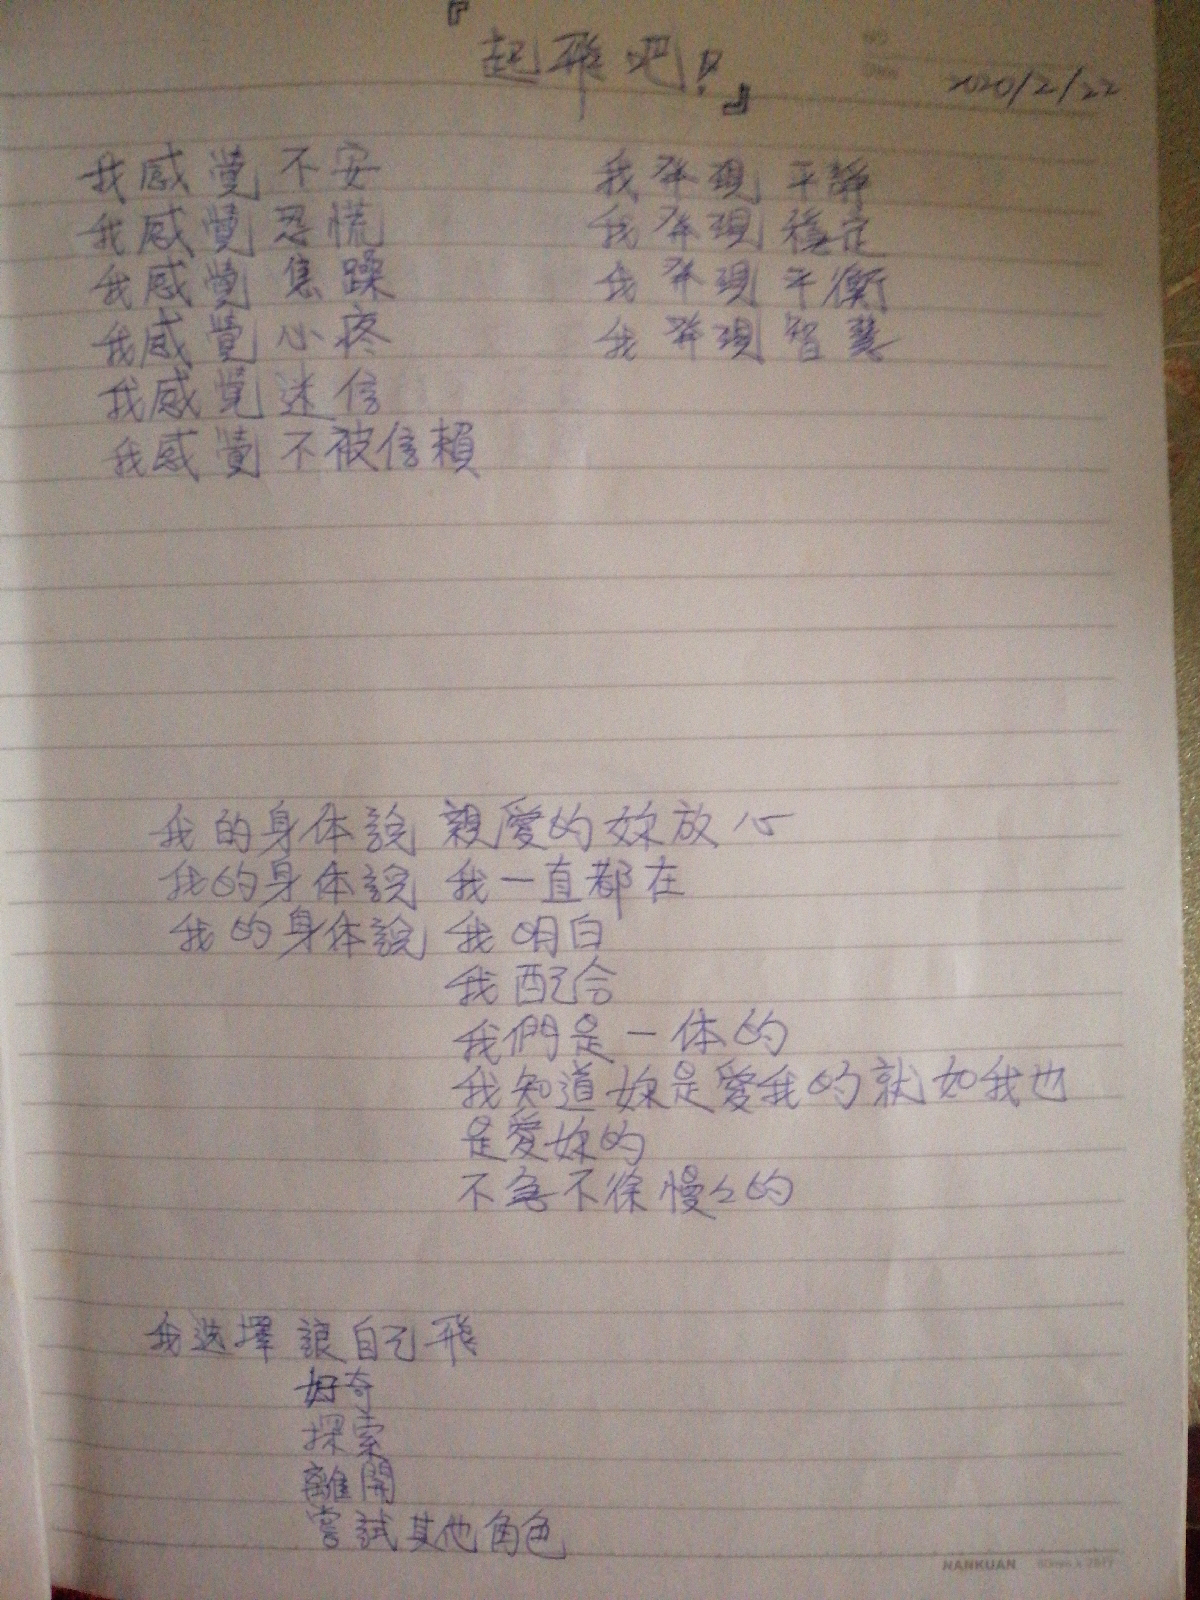 『起飛吧!』
2020/2/22
我感覺 不安
我感覺 恐慌
我感覺 焦躁
我感覺 心疼
我感覺 迷信
我感覺 不被信賴
我發現 平靜
我發現 穩定
我發現 平衡
我發現 智慧
我的身体說 親愛的妳放心
我的身体說 我一直都在
我的身体說 我明白
我配合
我們是一体的
我知道妳是愛我的就如我也
是愛妳的
不急不徐慢々的
我选擇 讓自己飛
好奇
探索
離開
嘗試其他角色
NANKUAN